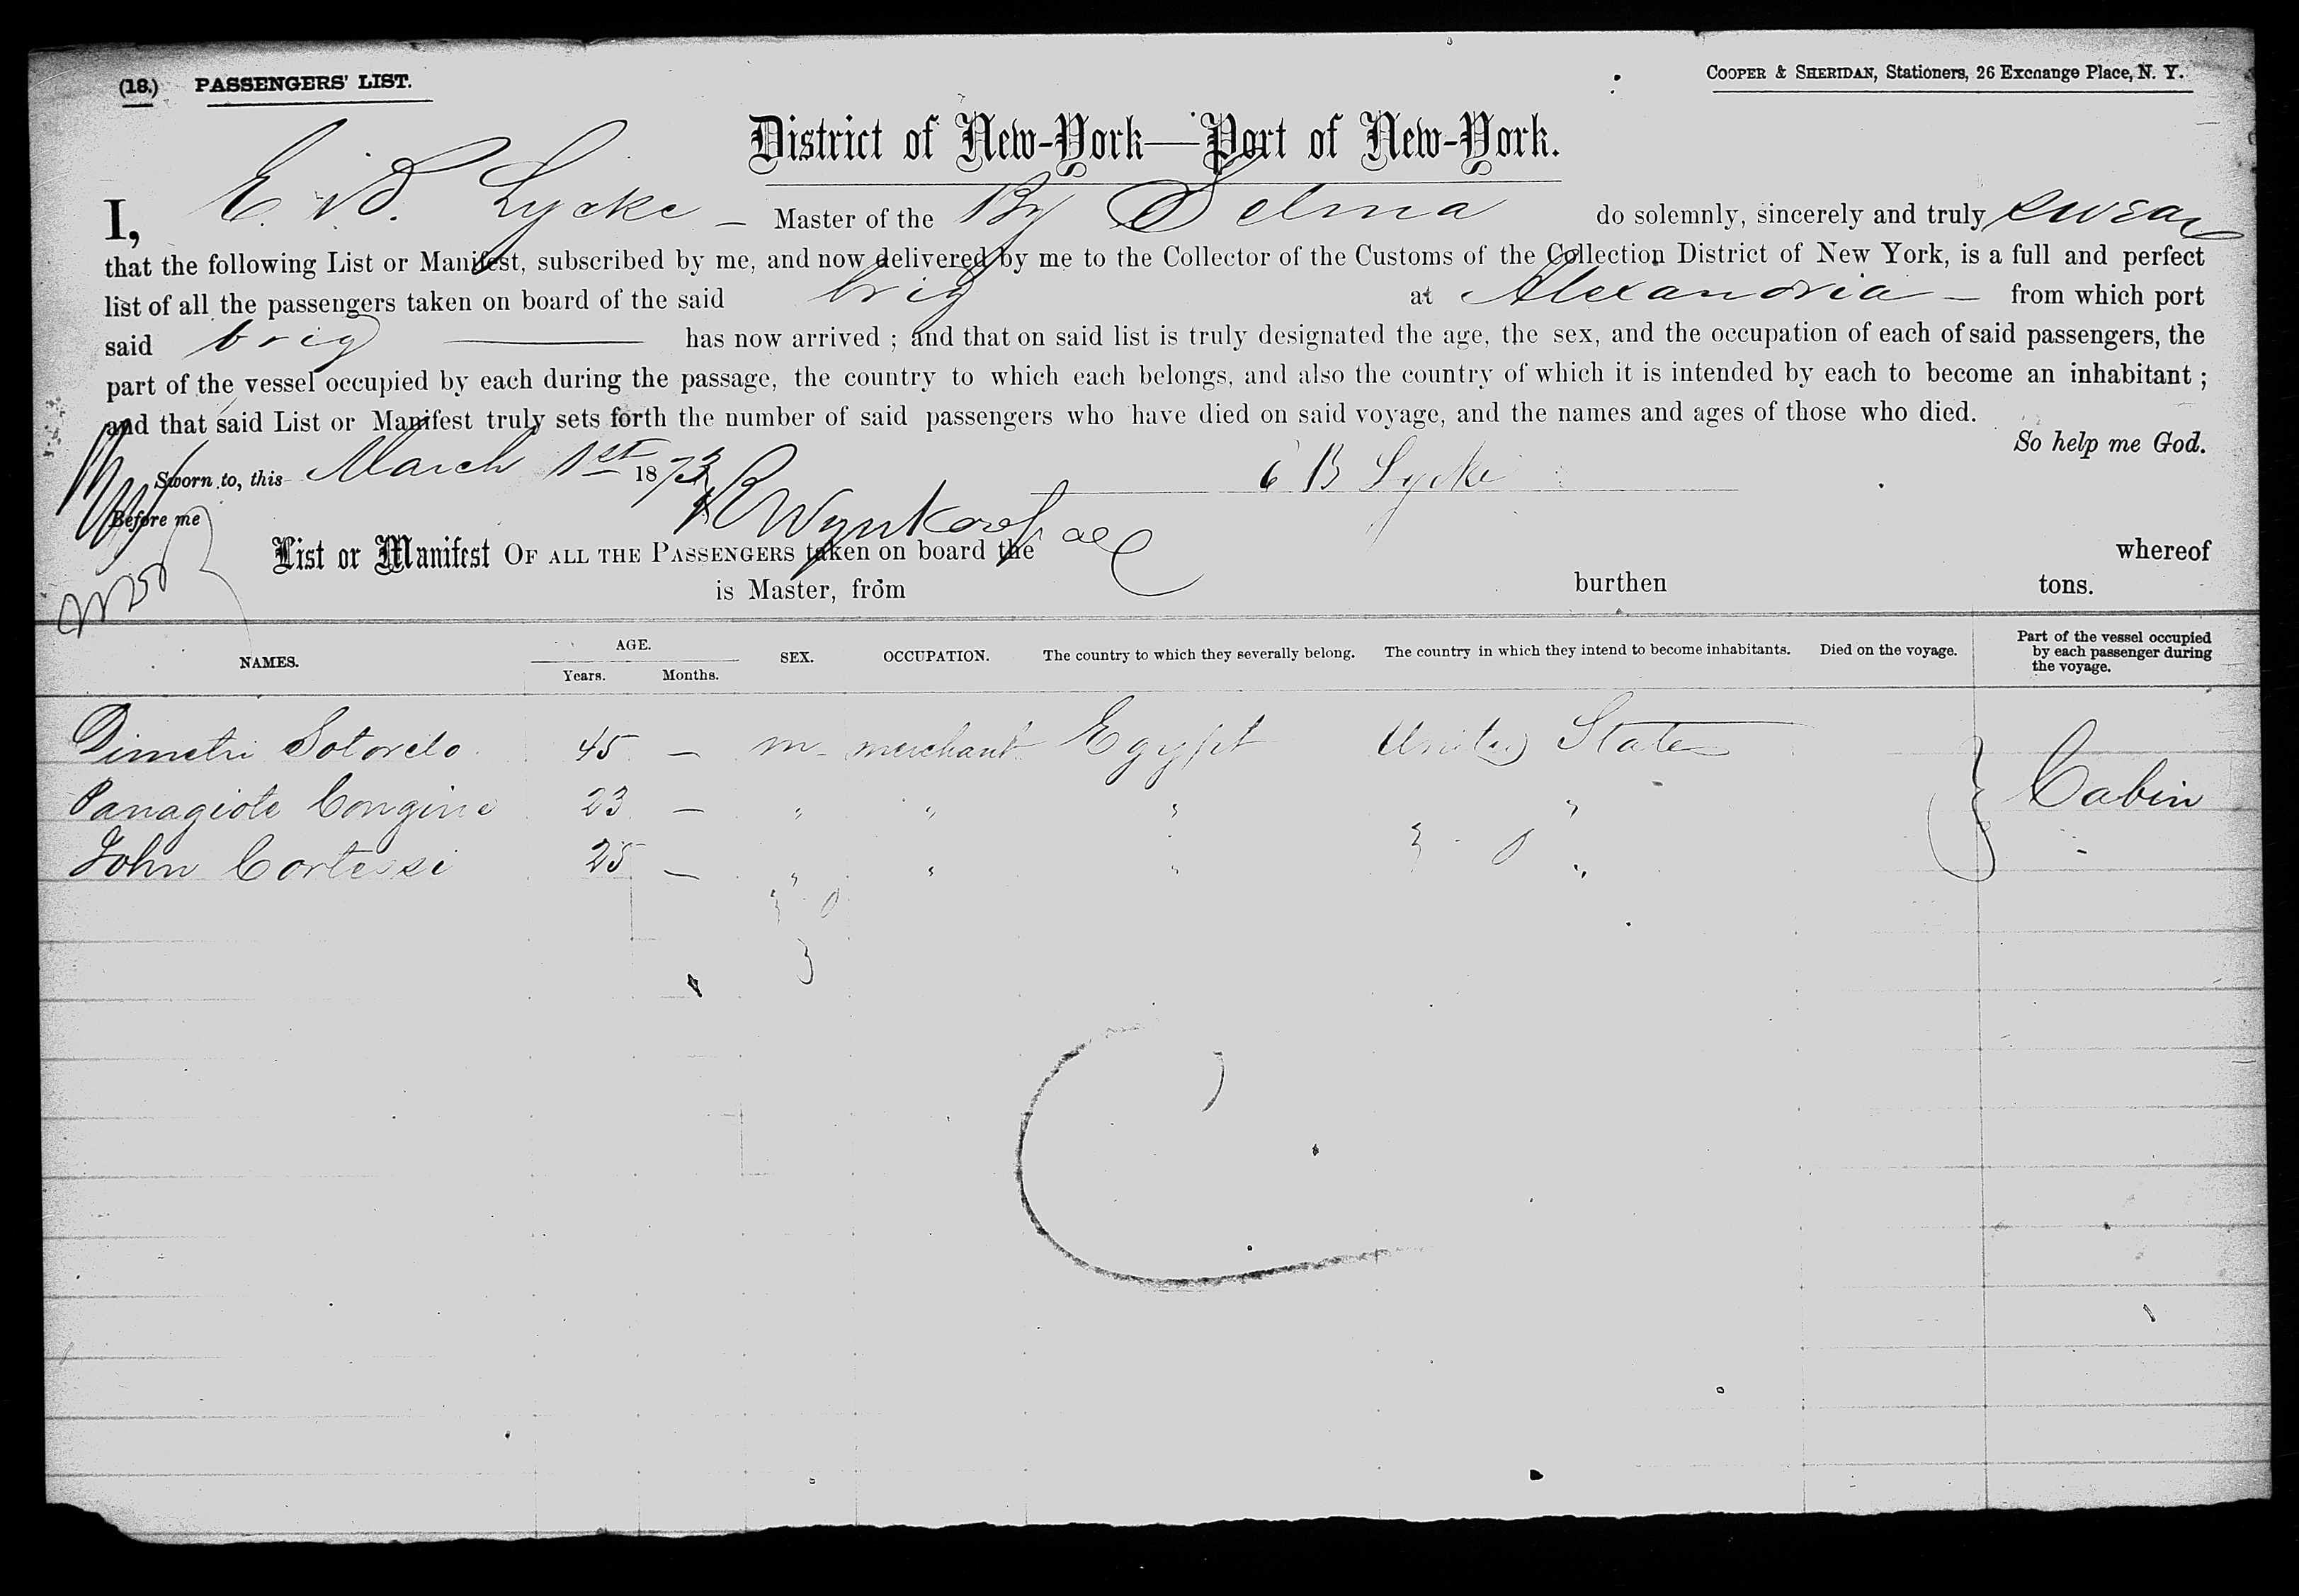 (18.) PASSENGERS' LIST.
COOPER & SHERIDAN, Stationers, 26 Exchange Place, N. Y.
District of New-York—Port of New-York.
I, E. B. Lycke — Master of the Bg Selma do solemnly, sincerely and truly swear
that the following List or Manifest, subscribed by me, and now delivered by me to the Collector of the Customs of the Collection District of New York, is a full and perfect
list of all the passengers taken on board of the said brig at Alexandria — from which port
said brig has now arrived ; and that on said list is truly designated the age, the sex, and the occupation of each of said passengers, the
part of the vessel occupied by each during the passage, the country to which each belongs, and also the country of which it is intended by each to become an inhabitant ;
and that said List or Manifest truly sets forth the number of said passengers who have died on said voyage, and the names and ages of those who died.
So help me God.
Sworn to, this March 1st 1873 E B Lycke
Before me
List or Manifest OF ALL THE PASSENGERS taken on board the whereof
is Master, from burthen tons.
NAMES. AGE. Years. Months. SEX. OCCUPATION. The country to which they severally belong. The country in which they intend to become inhabitants. Died on the voyage. Part of the vessel occupied by each passenger during the voyage.
Dimetri Sotorelo 45 — m merchant Egypt United States
Panagiote 23 — " " " " Cabin
John Cortessi 25 — " " " "